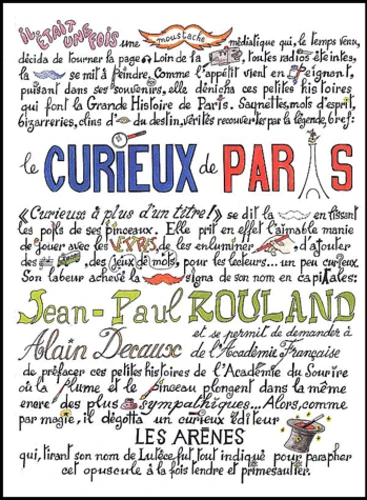 IL ÉTAIT UNE FOIS une moustache médiatique qui, le temps venu,
décida de tourner la page. Loin de la , toutes radios éteintes,
la se mit à peindre. Comme l'appétit vient en peignant,
puisant dans ses souvenirs, elle dénicha ces petites histoires
qui font la Grande Histoire de Paris. Saynettes, mots d'esprit,
bizarreries, clins d' du destin, vérités recouvertes par la légende, bref:
le CURIEUX de PARIS
《Curieuse à plus d'un titre!》 se dit la en lissant
les poils de ses pinceaux. Elle prit en effet l'aimable manie
de jouer avec les de les enluminer , d'ajouter
des , des jeux de mots, pour les lecteurs... un peu curieux.
Son labeur achevé la signa de son nom en capitales:
Jean-Paul ROULAND
et se permit de demander à
Alain Decaux de l'Académie Française
de préfacer ces petites histoires de l'Académie du Sourire
où la Plume et le Pinceau plongent dans la même
encre des plus sympathiques... Alors, comme
par magie, il dégotta un curieux éditeur
LES ARÈNES
qui, tirant son nom de Lutèce fut tout indiqué pour parapher
cet opuscule à la fois tendre et primesautier.